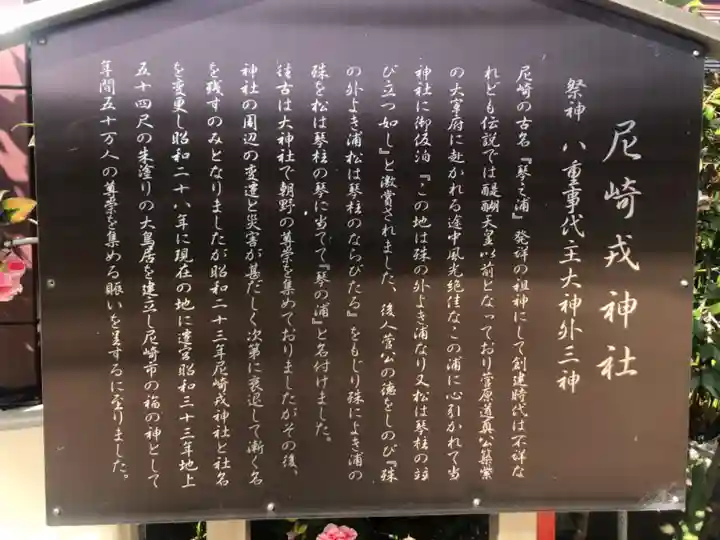 尼崎戎神社
祭神 八重事代主大神外三神
尼崎の古名『琴之浦』発祥の祖神にして創建時代は不詳な
れども伝説では醍醐天皇以前となっており菅原道真公築紫
の大宰府に赴かれる途中風光絶佳なこの浦に心引かれて当
神社に御仮泊『この地は殊の外よき浦なり又松は琴柱の立
び立つ如し』と激賞されました、後人菅公の徳をしのび『殊
の外よき浦松は琴柱のならびたる』をもじり殊によき浦の
殊を松は琴柱の琴に当てて『琴の浦』と名付けました。
往古は大神社で朝野の尊崇を集めておりましたがその後、
神社の周辺の変遷と災害が甚だしく次第に衰退して漸く名
を残すのみとなりましたが昭和二十三年尼崎戎神社と社名
を変更し昭和二十八年に現在の地に遷宮昭和三十三年地上
五十四尺の朱塗りの大鳥居を建立し尼崎市の福の神として
年間五十万人の尊崇を集める賑いを呈するに至りました。